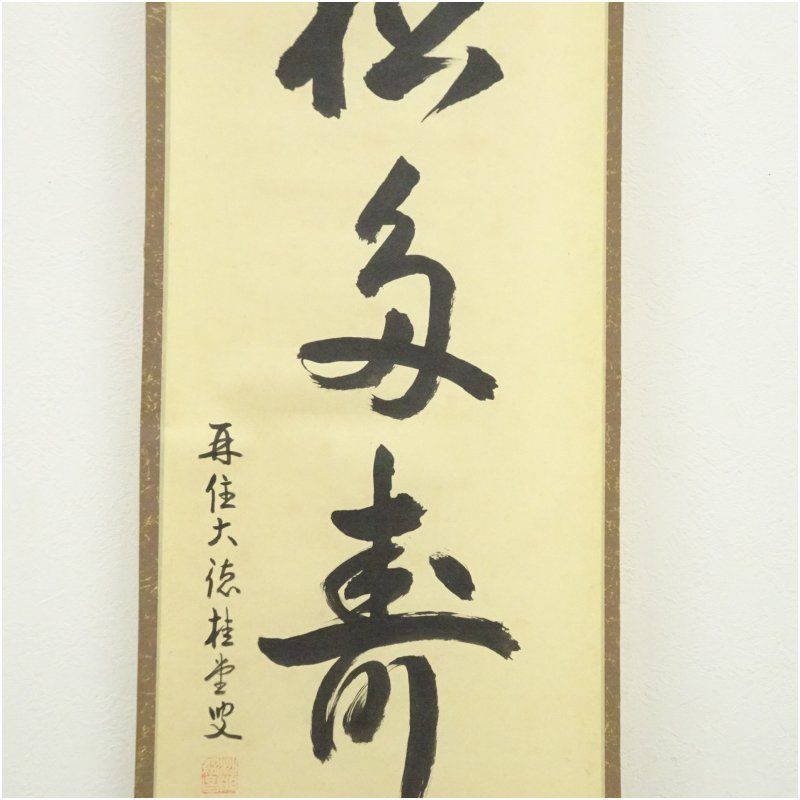 松多寿
再住大徳桂堂叟